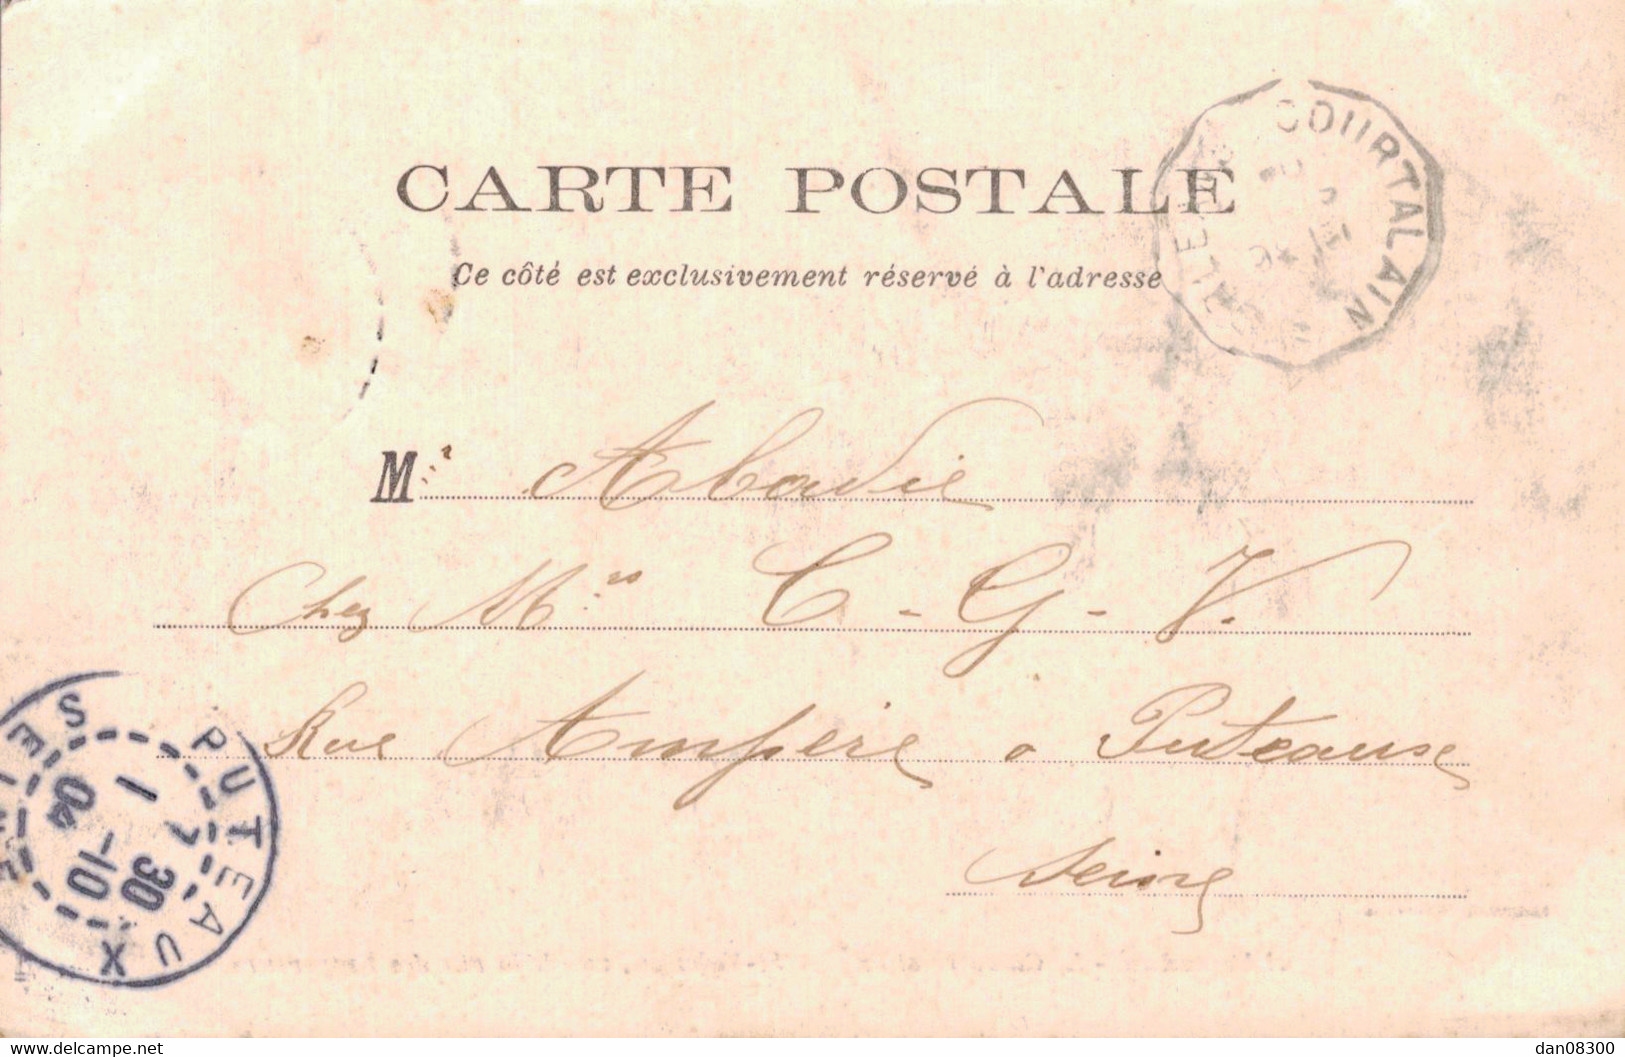 COURTALAIN
CARTE POSTALE
Ce côté est exclusivement réservé à l'adresse
Mr Abadie
Chez Mrs C-G-V.
Rue Ampère à Puteaux
Seine
PUTEAUX
SEINE
7 30
1 -10
04
delcampe.net
dan08300